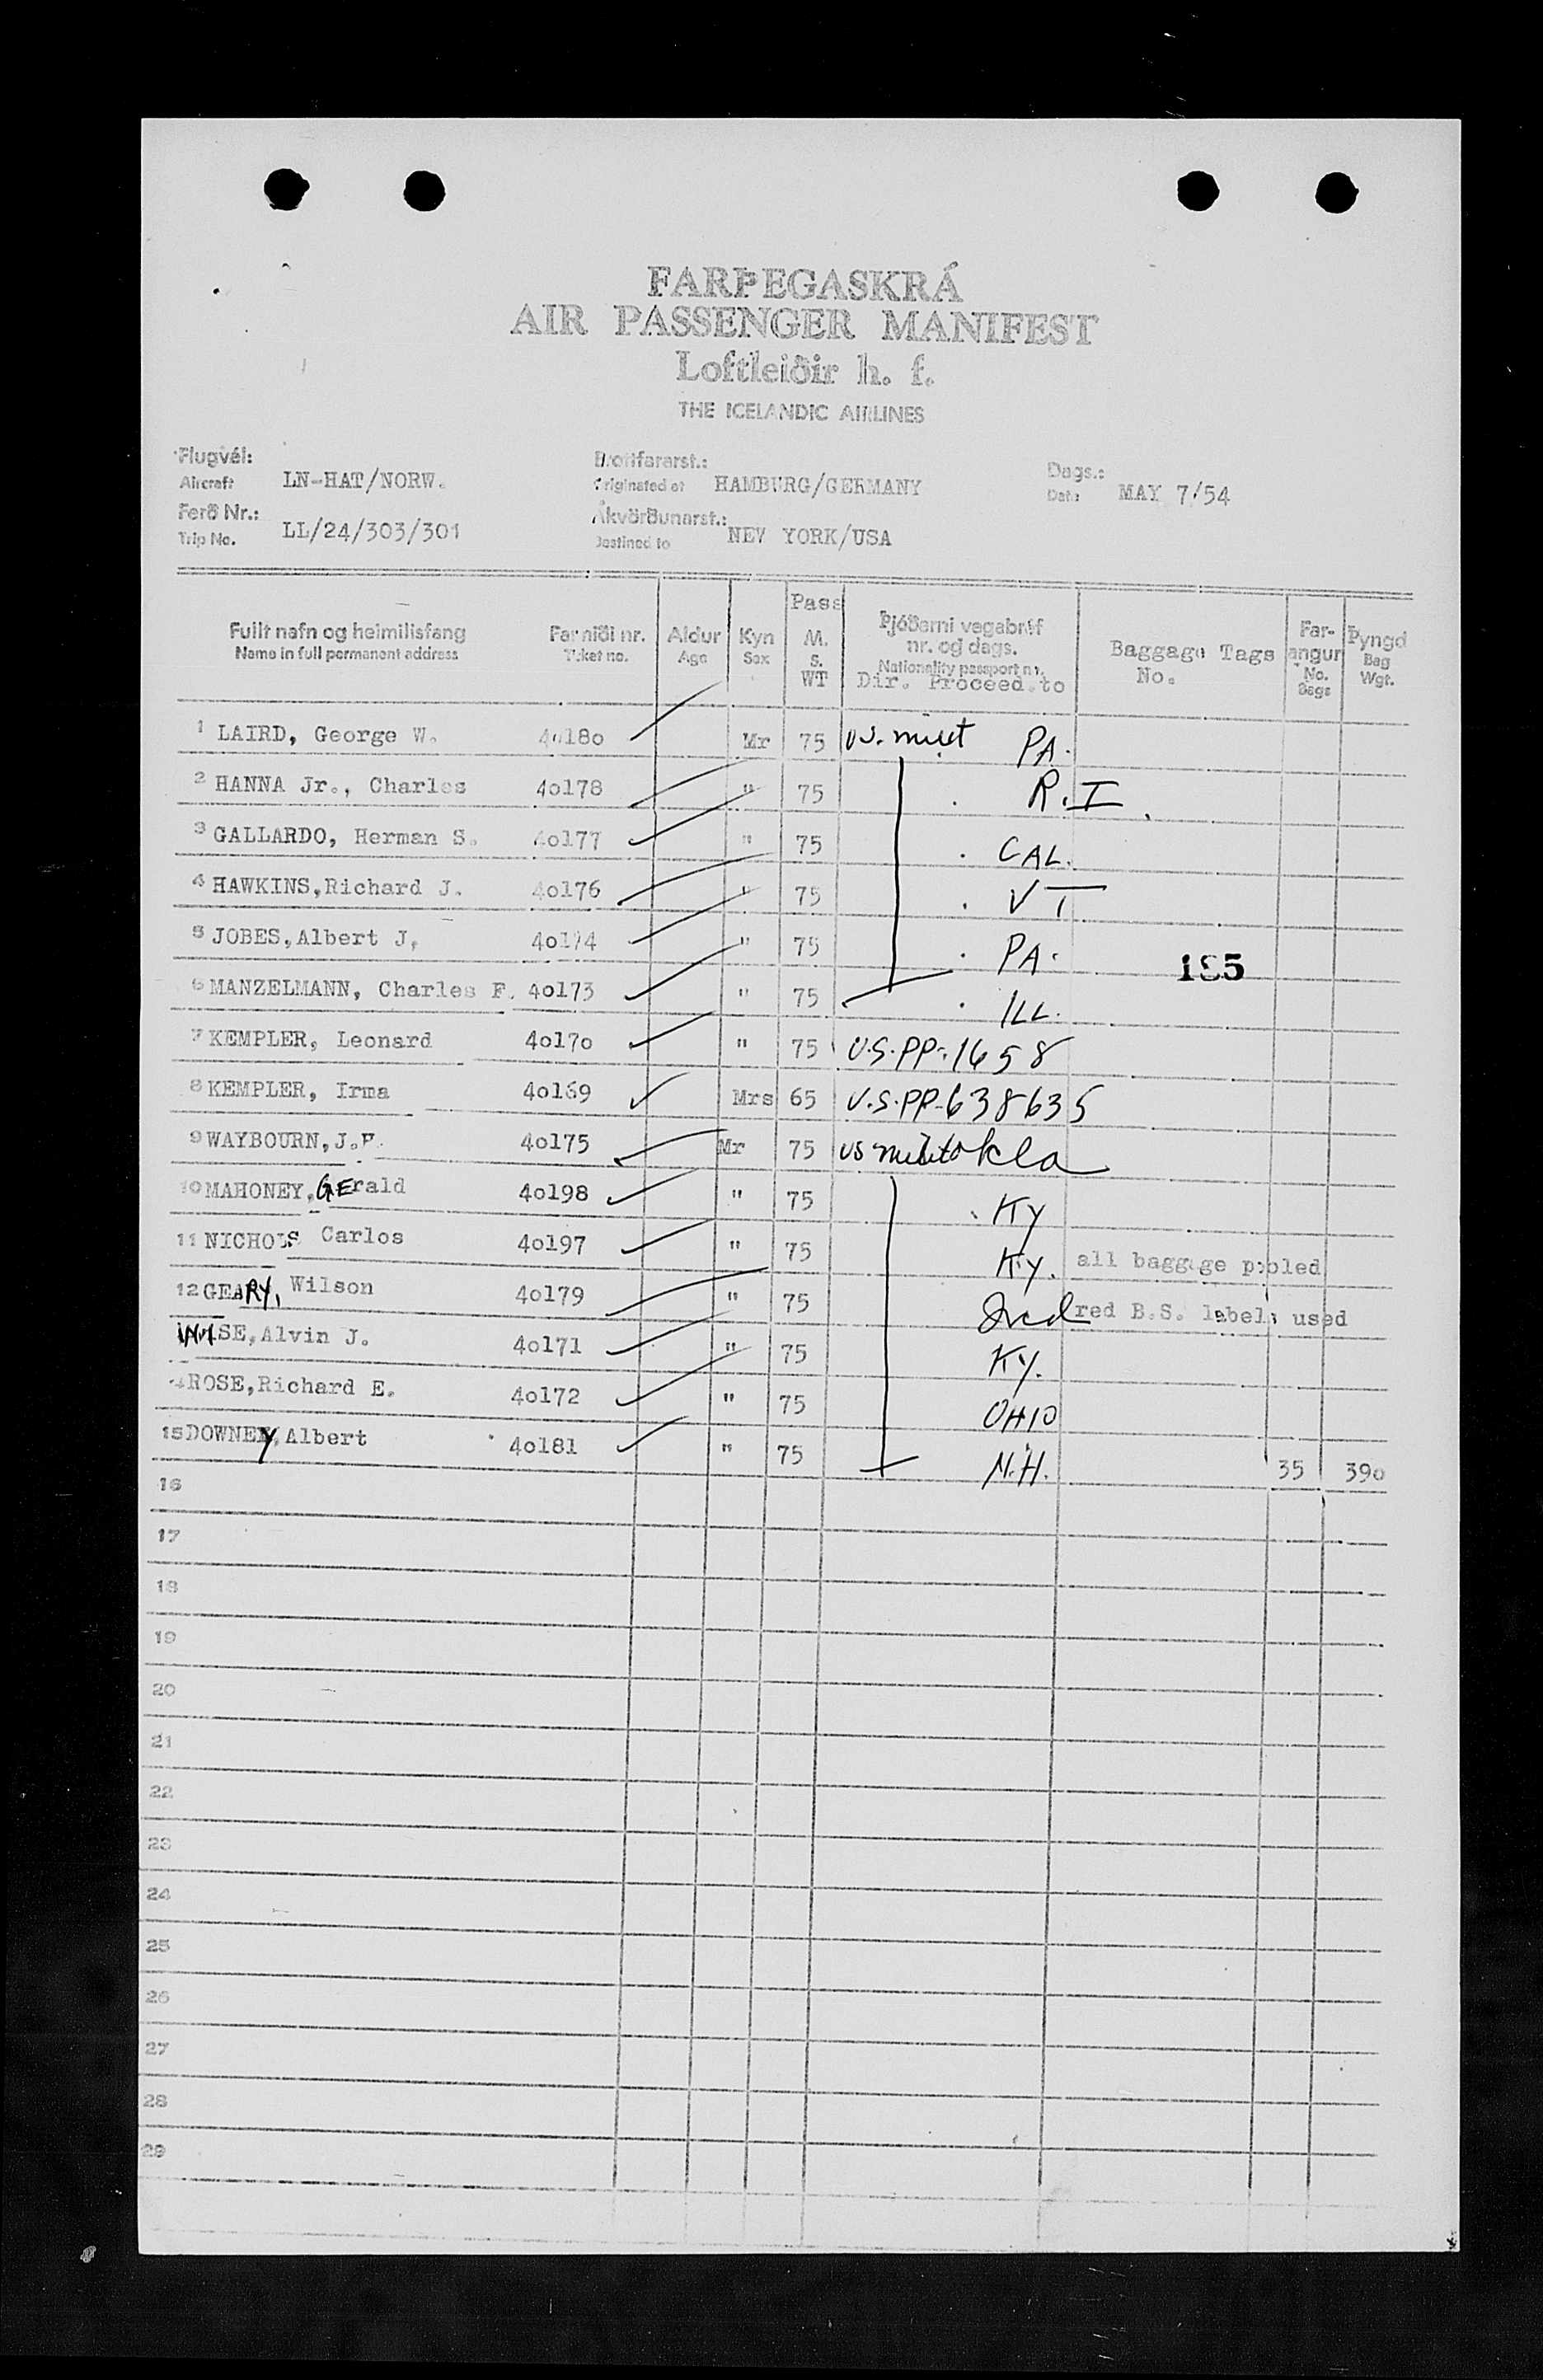 FARÞEGASKRÁ
AIR PASSENGER MANIFEST
Loftleiðir h. f.
THE ICELANDIC AIRLINES
Flugvél: Brottfararst.: Dags.:
Aircraft LN-HAT/NORW. Originated at HAMBURG/GERMANY Date MAY 7/54
Ferð Nr.: Ákvörðunarst.:
Trip No. LL/24/303/301 Destined to NEW YORK/USA
Pass
Fullt nafn og heimilisfang Farmiði nr. Aldur Kyn M. Þjóðerni vegabréf Baggage Tags Far- Þyngd
Name in full permanent address Ticket no. Age Sex s. nr. og dags. No. angur Bag
WT Nationality passport nr. No. Wgt.
Dir. Proceed.to Bags
1 LAIRD, George W. 40180 Mr 75 US. milit PA.
2 HANNA Jr., Charles 40178 " 75 R.I.
3 GALLARDO, Herman S. 40177 " 75 CAL.
4 HAWKINS,Richard J. 40176 " 75 VT
5 JOBES,Albert J. 40174 " 75 PA.
185
6 MANZELMANN, Charles F. 40173 " 75 ILL.
7 KEMPLER, Leonard 40170 " 75 U.S.PP-1658
8 KEMPLER, Irma 40169 Mrs 65 U.S.PP-638635
9 WAYBOURN,J. 40175 Mr 75 US milit Okla
10 MAHONEY,GErald 40198 " 75 KY
11 NICHOLS Carlos 40197 " 75 KY. all baggage pooled
12 GEARY, Wilson 40179 " 75 Ind red B.S. labels used
SE,Alvin J. 40171 " 75 KY.
ROSE,Richard E. 40172 " 75 OHIO
15 DOWNEY,Albert 40181 " 75 N.H. 35 390
16
17
18
19
20
21
22
23
24
25
26
27
28
29